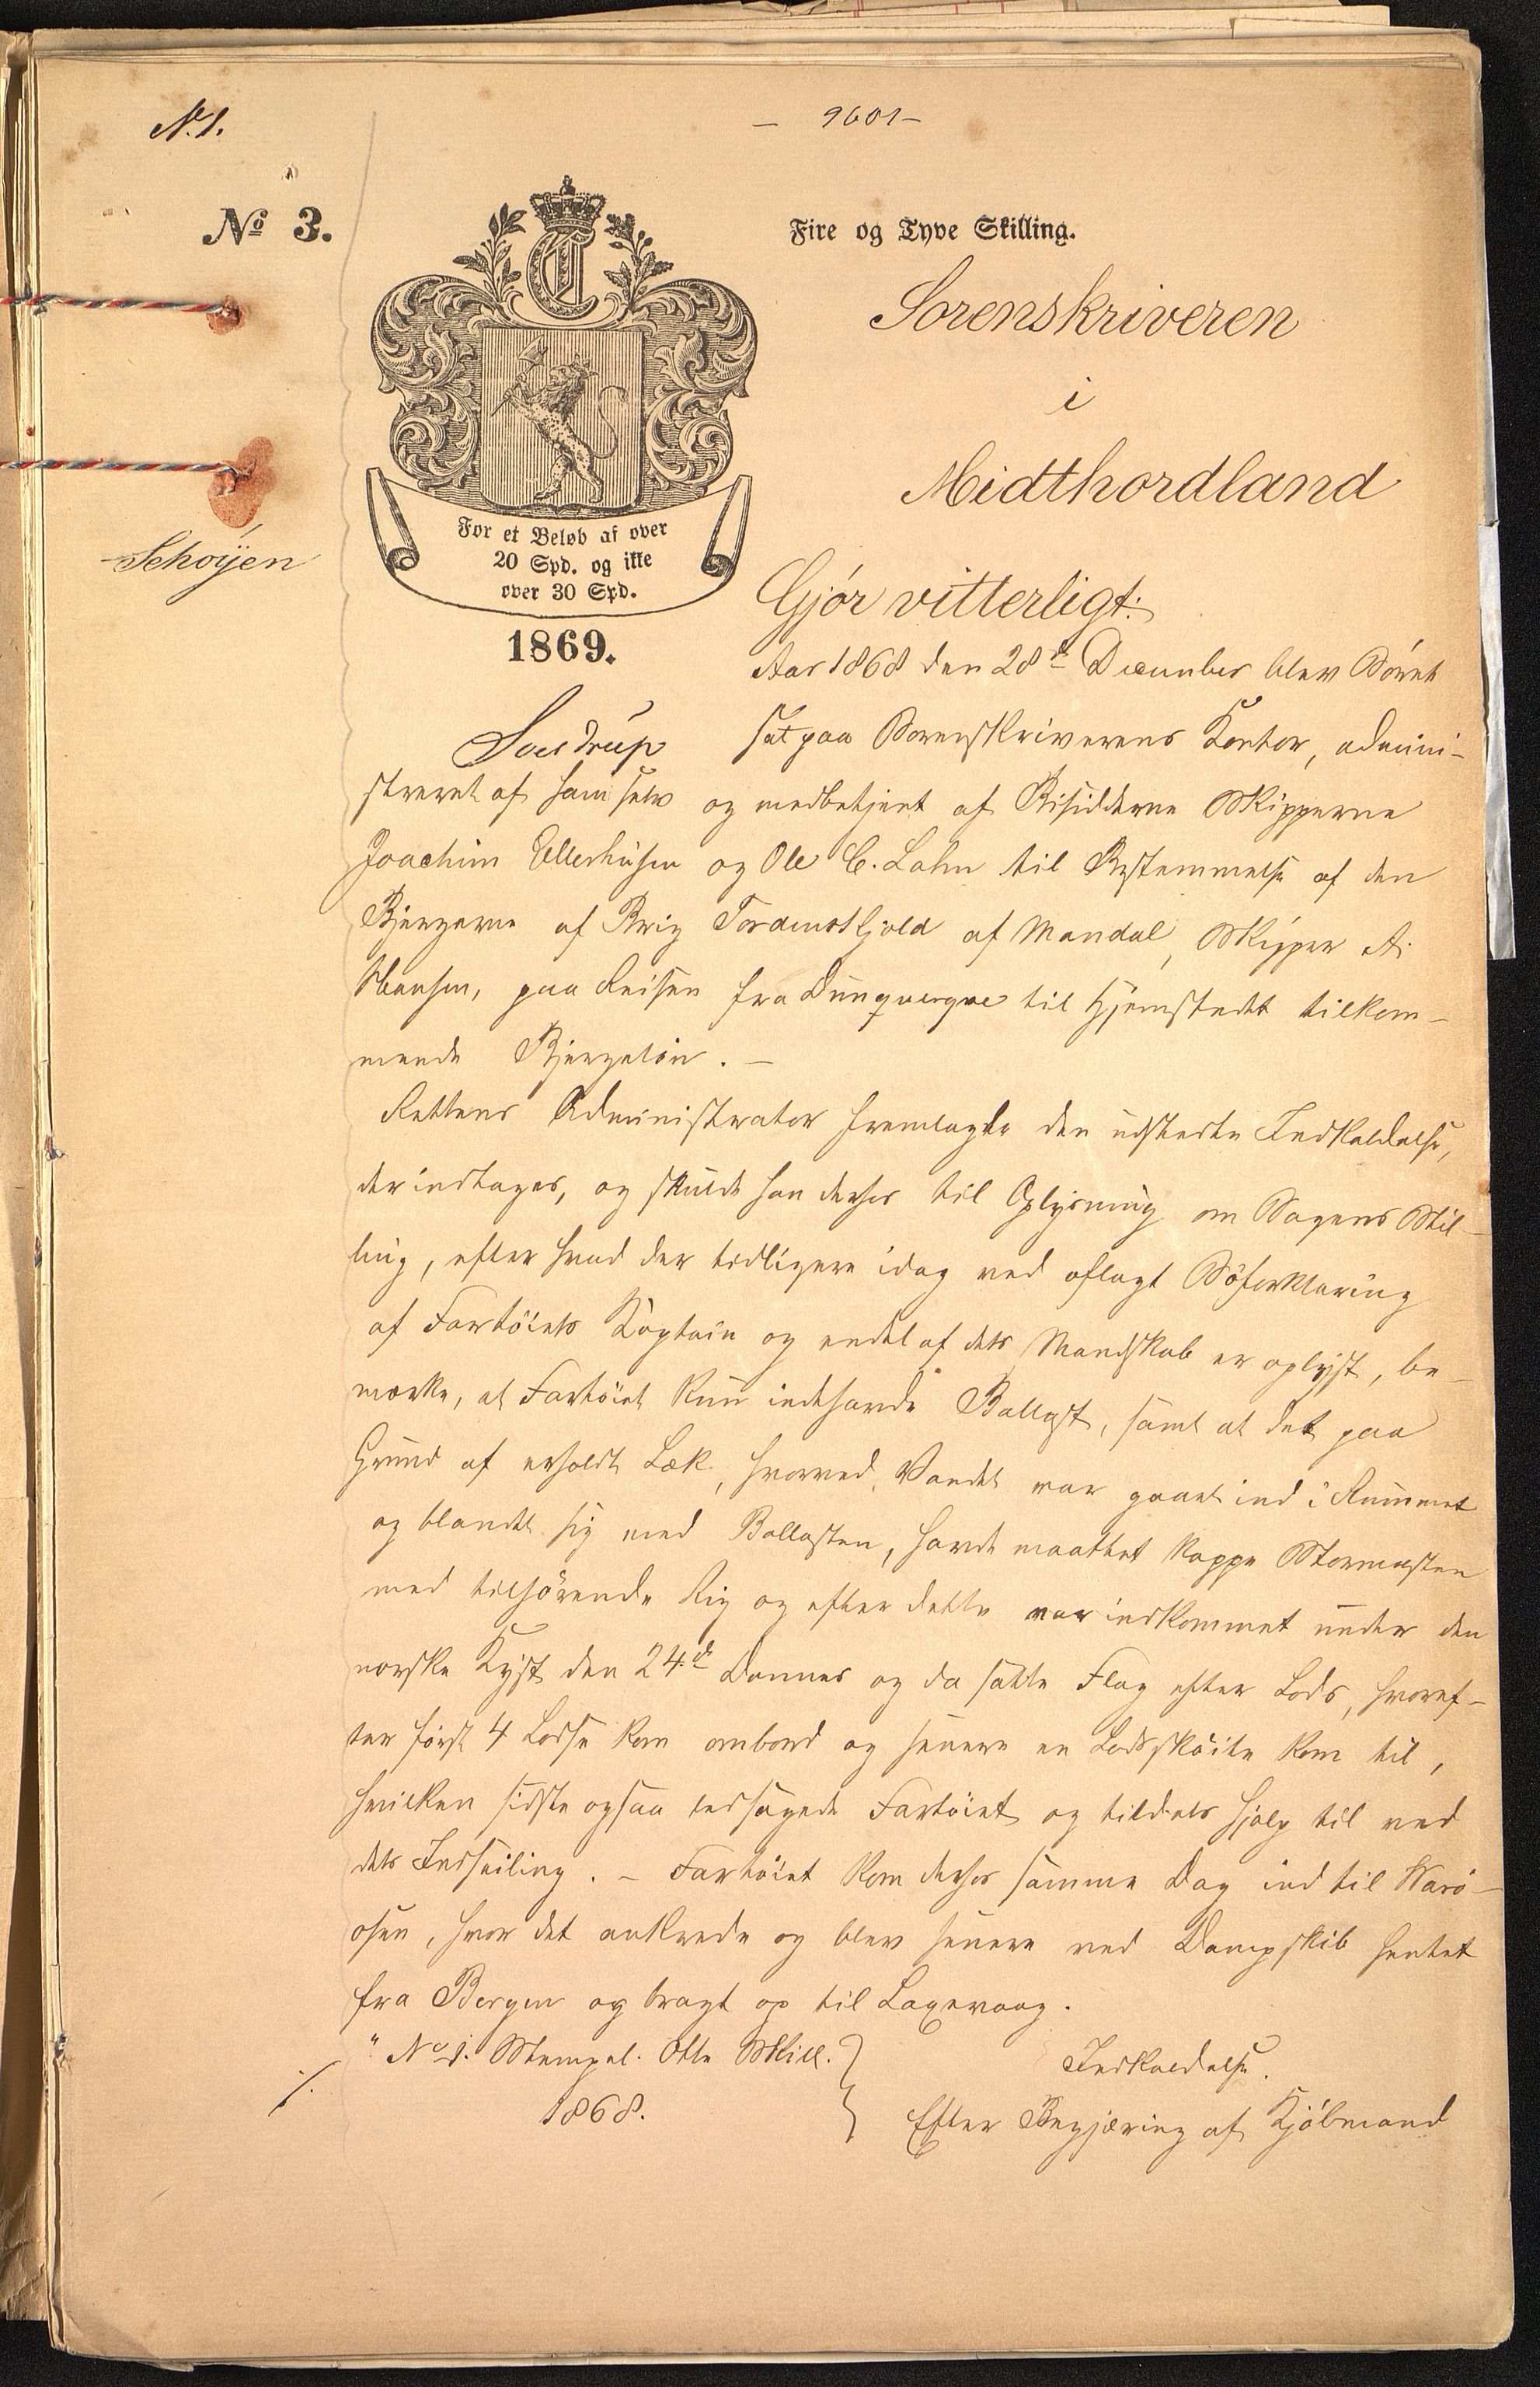 N. 1.
— 9601 —
No 3.
Fire og Tyve Skilling.
Sorenskriveren
i
Midthordland
For et Beløb af over
20 Spd. og ikke
over 30 Spd.
Schoÿen
1869.
Gjór vitterligt:
Aar 1868 den 28d December blev Söret
sat paa Sorenskriverens Kontor, admini-
streret af ham selv og medbetjent af Bisidderne Skipperne
Joachim Ellerhusen og Ole C. Lahn til Bestemmelse af den
Bjergerne af Brig Tordenskjold af Mandal, Skipper A.
paa Reisen fra Dunquerque til Hjemstedet tilkom-
mende Bjergelön. —
Rettens Administrator fremlagde den udstedte Indkaldelse,
der indtages, og skulde han derhos til Oplysning om Sagens Stil-
ling, efter hvad der tidligere idag ved aflagt Söforklaring
af Fartöiets Kaptain og endel af dets Mandskab er oplyst, be-
mærke, at Fartöiet kun indehavde Ballast, samt at det paa
Grund af erholdt Læk, hvorved Vandet var gaaet ind i Rummet
og blandet sig med Ballasten, havde maattet kappe Stormasten
med tilhörende Rig og efter dette var indkommet under den
norske Kyst den 24d Dennes og da satte Flag efter Lods, hvoref-
ter först 4 Lodse kom ombord og senere en Lodsskóite kom til,
hvilken sidste ogsaa ledsagede Fartöiet og tildels hjalp til ved
dets Indseiling. — Fartöiet kom derhos samme Dag ind til
osen, hvor det ankrede og blev senere ved Dampskib hentet
fra Bergen og bragt op til Laxevaag.
" No 1. Stempel. Otte Skill. }
1868. }
Indkaldelse.
Efter Begjæring af Kjöbmand